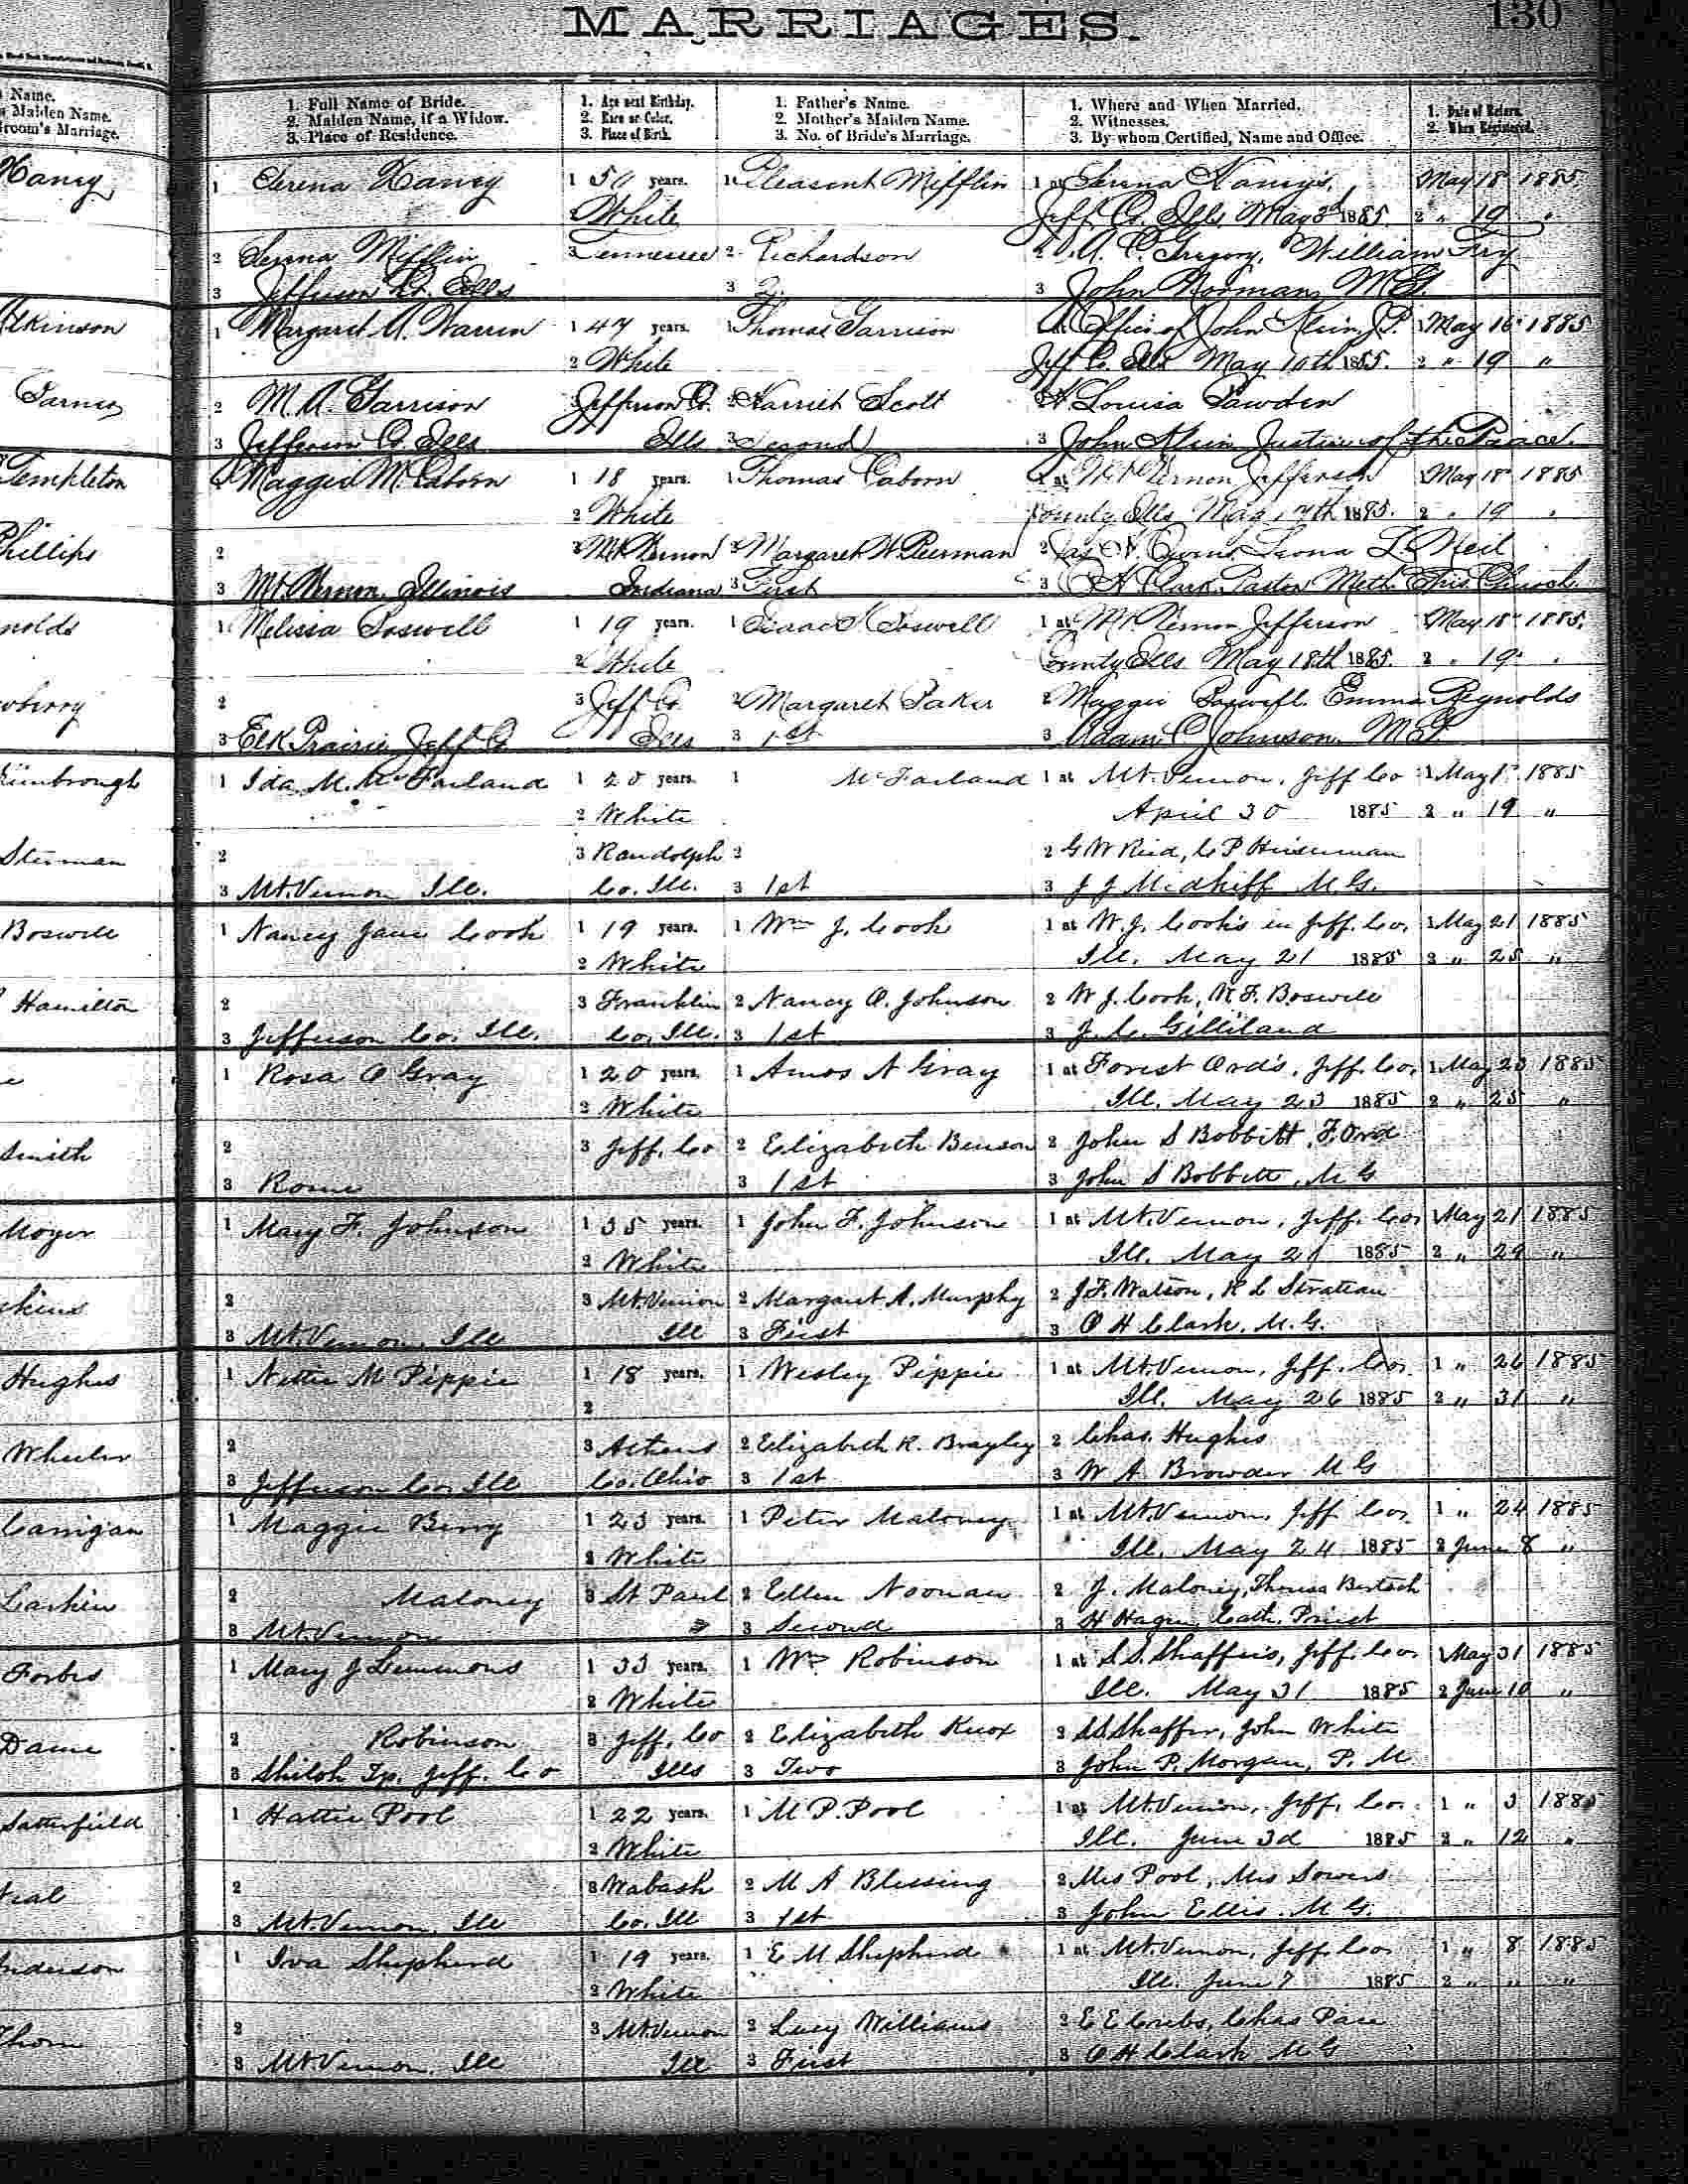 MARRIAGES.
130
Name.
Maiden Name.
Groom's Marriage.
1. Full Name of Bride.
2. Maiden Name, if a Widow.
3. Place of Residence.
1. Age next Birthday.
2. Race or Color.
3. Place of Birth.
1. Father's Name.
2. Mother's Maiden Name.
3. No. of Bride's Marriage.
1. Where and When Married.
2. Witnesses.
3. By whom Certified, Name and Office.
1. Date of Return.
2. When Registered.
Haney 1 Serena Haney 1 50 years. 1 Pleasent Mifflin 1 at Serena Haney's, May 18 1885.
2 White Jeff. Co. Ills. May 3d 1885. 2 " 19 "
2 Serena Mifflin 3 Tennessee 2 Richardson 2 A. C. Gregory, William Fry
3 Jefferson Co. Ills 3 2 3 John Norman, M.G.
1 Margaret A. Warren 1 47 years. 1 Thomas Garrison at Office of John Klein J.P. 1 May 16 1885
2 White Jeff Co. Ills May 10th 1885. 2 " 19 "
2 M. A. Garrison Jefferson Co. 2 Harriet Scott 2 Louisa
3 Jefferson Co. Ills Ills 3 Second 3 John Klein Justice of the Peace.
Templeton Maggie M. Caborn 1 18 years. 1 Thomas Caborn at Mt Vernon Jefferson May 18 1885
2 White County Ills May 17th 1885. 2 " 19 "
Phillips 2 3 Mt Vernon 2 Margaret W. 2 Leona L. Neil
3 Mt. Vernon, Illinois Indiana 3 First 3 Clark Pastor Meth. Epis. Church
1 Melissa Boswell 1 19 years. 1 Isaac Boswell 1 at Mt. Vernon Jefferson May 18 1885.
2 White County Ills May 18th 1885. 2 " 19 "
2 3 Jeff Co. 2 Margaret Baker 2 Maggie Boswell. Emma Reynolds
3 Elk Prairie Jeff Co Ills 3 1st 3 Adam C Johnson. M.G.
Kimbrough 1 Ida M. McFarland 1 20 years. 1 McFarland 1 at Mt. Vernon, Jeff Co 1 May 1885
2 White April 30 1885 2 " 19 "
2 3 Randolph 2 2 G W Reid,
3 Mt. Vernon Ill. Co. Ill. 3 1st 3 J J M.G.
Boswell 1 Nancy Jane Cook 1 19 years. 1 Wm J. Cook 1 at W. J. Cook's in Jeff. Co. 1 May 21 1885
2 White Ill. May 21 1885 2 " 25 "
Hamilton 2 3 Franklin 2 Nancy A. Johnson 2 W J. Cook, W. F. Boswell
3 Jefferson Co. Ill. Co. Ill. 3 1st 3 J. C. Gilliland
1 Rosa O Gray 1 20 years. 1 Amos N Gray 1 at Forest Ord's, Jeff. Co. 1 May 23 1885
2 White Ill. May 23 1885 2 " 25 "
Smith 2 3 Jeff. Co 2 Elizabeth Benson 2 John S Bobbitt, F. Ord
3 Rome 3 1st 3 John S Bobbitt, M G
Moyer 1 Mary F. Johnson 1 35 years. 1 John F. Johnson 1 at Mt. Vernon, Jeff. Co. 1 May 21 1885
2 White Ill. May 21 1885 2 " 29 "
2 3 Mt. Vernon 2 Margaret A. Murphy 2 J. F. Watson, R L Strattan
3 Mt. Vernon, Ill Ill 3 First 3 O H Clark. M. G.
Hughes 1 Nettie M Pippie 1 18 years. 1 Wesley Pippie 1 at Mt. Vernon, Jeff. Co. 1 " 26 1885
2 Ill. May 26 1885 2 " 31 "
Wheeler 2 3 Athens 2 Elizabeth R. Brayley 2 Chas. Hughes
3 Jefferson Co. Ill Co. Ohio 3 1st 3 W A Browder M G
Carrigan 1 Maggie Berry 1 23 years. 1 Peter Maloney 1 at Mt. Vernon, Jeff Co. 1 " 24 1885
2 White Ill. May 24 1885 2 June 8 "
Larkin 2 Maloney 3 St Paul 2 Ellen Noonan 2 J. Maloney, Theresa Bertsch
3 Mt. Vernon 3 Second 3 H Hagen Cath. Priest
Forbes 1 Mary J Lemmons 1 33 years. 1 Wm Robinson 1 at S S. Shaffer's, Jeff. Co. 1 May 31 1885
2 White Ill. May 31 1885 2 June 10 "
Dame 2 Robinson 3 Jeff. Co 2 Elizabeth Knox 2 S S Shaffer, John White
3 Shiloh Tp. Jeff. Co Ills 3 Two 3 John P. Morgan, P. M
Satterfield 1 Hattie Pool 1 22 years. 1 M P. Pool 1 at Mt. Vernon, Jeff. Co. 1 " 3 1885
2 White Ill. June 3d 1885 2 " 12 "
2 3 Wabash 2 M A Blessing 2 Mrs Pool, Mrs Sowers
3 Mt. Vernon, Ill Co. Ill 3 1st 3 John Ellis. M G.
1 Iva Shepherd 1 19 years. 1 E M Shepherd 1 at Mt. Vernon, Jeff. Co. 1 " 8 1885
2 White Ill. June 7 1885 2 " " "
2 3 Mt. Vernon 2 Lucy Williams 2 E E Cubs, Chas Pace
3 Mt. Vernon, Ill Ill 3 First 3 O H Clark M G